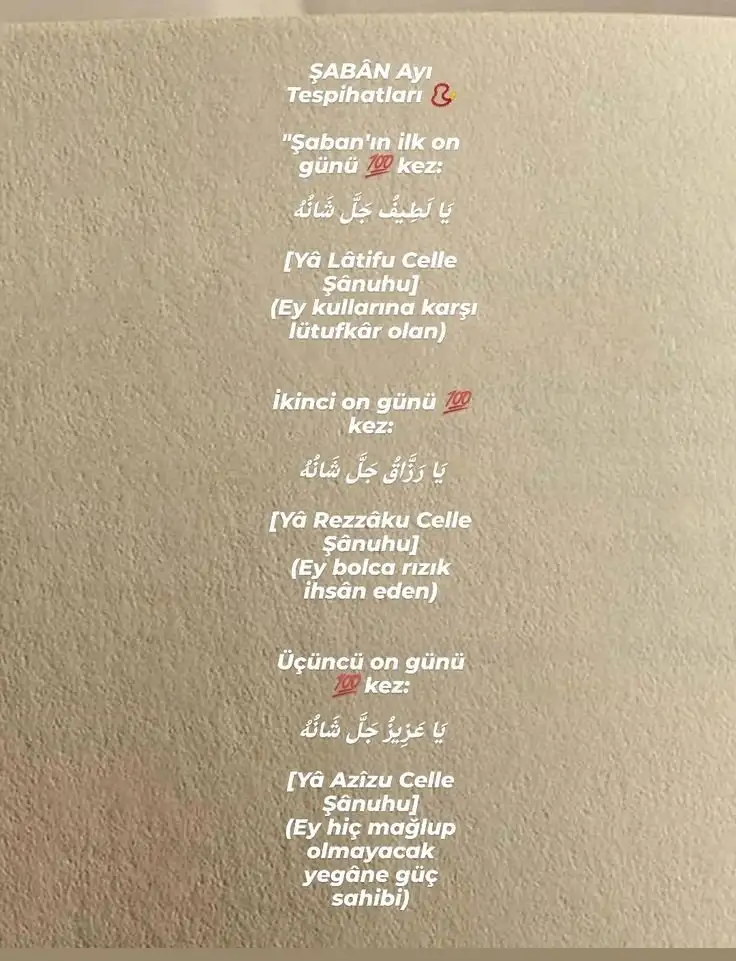 ŞABÂN Ayı
Tespihatları 📿
"Şaban'ın ilk on
günü 💯 kez:
يَا لَطِيفُ جَلَّ شَانُهُ
[Yâ Lâtifu Celle
Şânuhu]
(Ey kullarına karşı
lütufkâr olan)
İkinci on günü 💯
kez:
يَا رَزَّاقُ جَلَّ شَانُهُ
[Yâ Rezzâku Celle
Şânuhu]
(Ey bolca rızık
ihsân eden)
Üçüncü on günü
💯 kez:
يَا عَزِيزُ جَلَّ شَانُهُ
[Yâ Azîzu Celle
Şânuhu]
(Ey hiç mağlup
olmayacak
yegâne güç
sahibi)